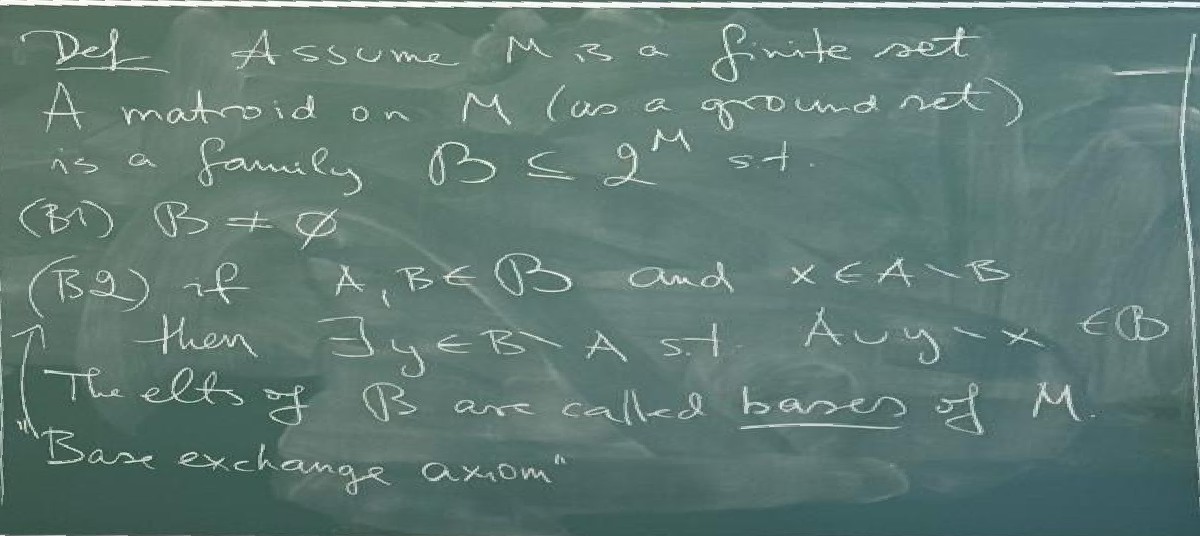 Def Assume M is a finite set
A matroid on M (as a ground set)
is a family ℬ ⊆ 2^M s.t.
(B1) ℬ ≠ ∅
(B2) if A, B ∈ ℬ and x ∈ A \ B
then ∃ y ∈ B \ A s.t. A ∪ y \ x ∈ ℬ
The elts of ℬ are called bases of M.
"Base exchange axiom"